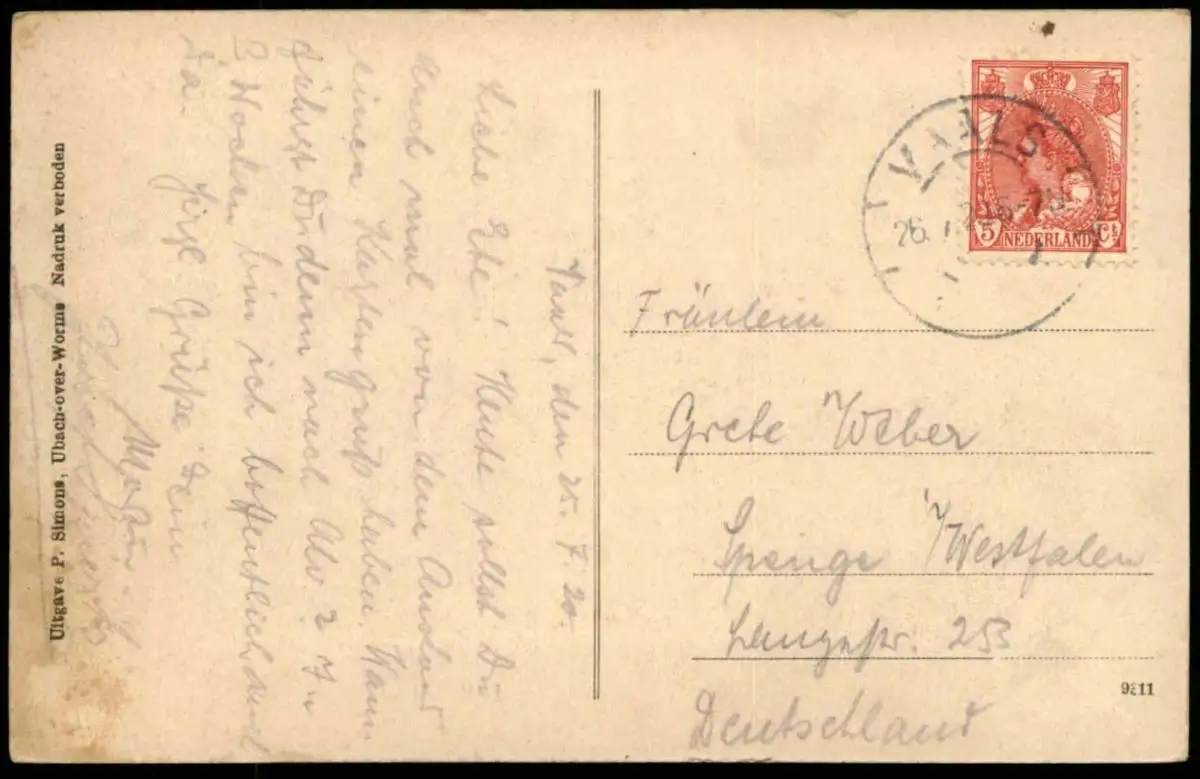 Vaals, den 25. 7. 20.
Liebe Ete! Heute sollst Du
auch mal von dem Ausland
einen Kartengruß haben. Wann
fährst Du denn nach Abo? In
3 Wochen bin ich hoffentlich dort
da. Herzl Grüße Dein
Uitgave P. Simons, Ubach-over-Worms Nadruk verboden
VAALS
26.
5 NEDERLAND Ct
Fräulein
Grete Weber
Spenge i/Westfalen
Langestr. 253
Deutschland
9811